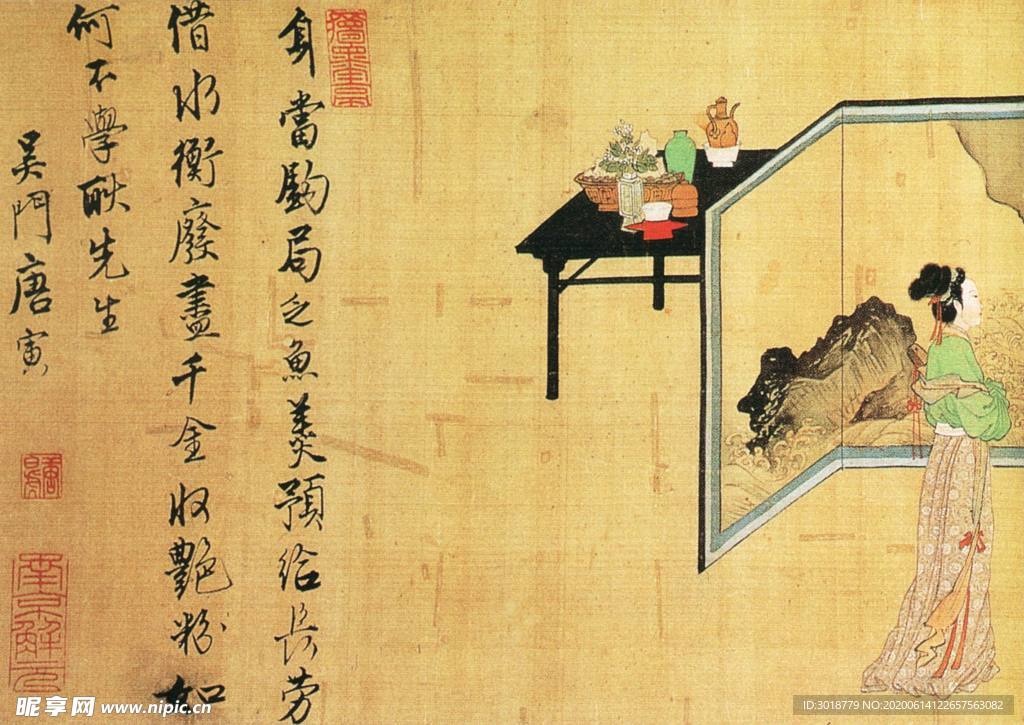 身當鈎局乏魚羹預給長劳
借水衡廢盡千金收艷粉如
何不學耿先生
吳門唐寅
南京解元
昵享网 www.nipic.cn
ID:3018779 NO:20200614122657563082